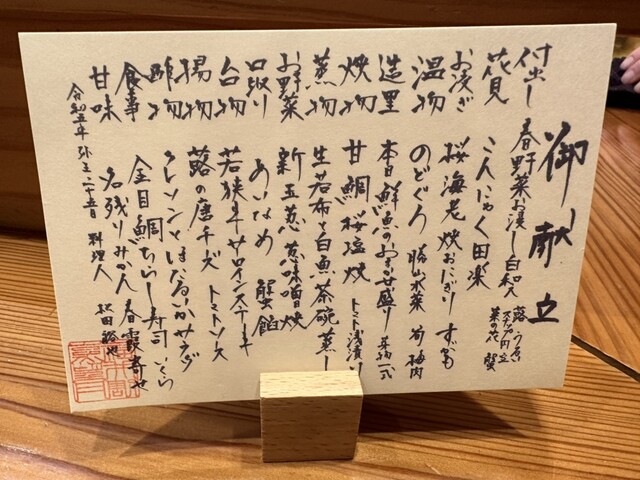 御献立
付出し 春野菜お浸し白和え 蕗 うるい スナップ 菜の花 蟹
花見 こんにゃく田楽
お凌ぎ 桜海老焼おにぎり すずめ
温物 のどぐろ 勝山水菜 筍 梅肉
造里 本日鮮魚のお分せ盛り 一式
焼物 甘鯛桜塩焼 トマト浅漬
蒸物 生若布と白魚茶碗蒸し
お野菜 新玉葱 葱味噌焼
口取り あいなめ 蟹餡
台物 若狭牛サロインステーキ
揚物 蕗の唐チーズ トマトソース
酢物 クレソンとほたるいかサラダ
食事 金目鯛ちらし寿司 いくら
甘味 名残りみかん 春霞寄せ
令和五年 弥生二十五日 料理人 松田